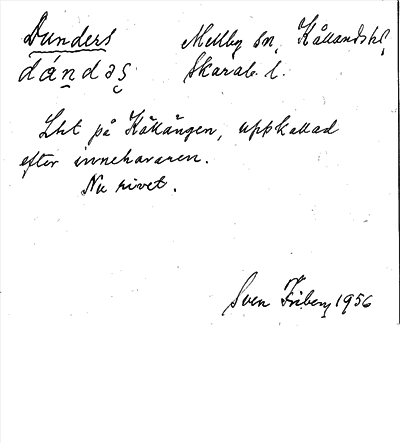 Dunders Mellby sn, Kållands hd,
dándəs Skarab. l.
Lht på Kåkängen, uppkallad
efter innehavaren.
Nu rivet.
Sven Friberg 1956